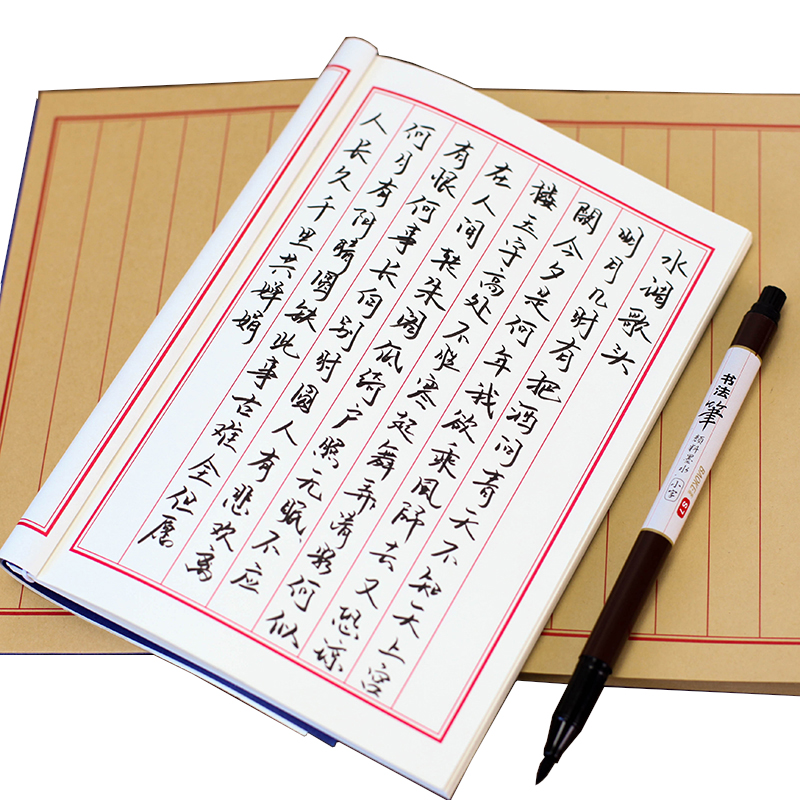 水调歌头
明月几时有把酒问青天不知天上宫
阙今夕是何年我欲乘风归去又恐琼
楼玉宇高处不胜寒起舞弄清影何似
在人间转朱阁低绮户照无眠不应
有恨何事长向别时圆人有悲欢离
何月有阴晴圆缺此事古难全但愿
人长久千里共婵娟
书法筆
颜料墨水
小字